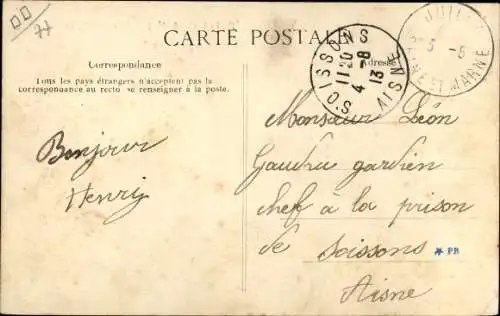 77
CARTE POSTALE
Correspondance
Tous les pays étrangers n'acceptent pas la
correspondance au recto se renseigner à la poste.
Adresse
SOISSONS
11 20
4 -8
13
AISNE
JUILLY
3 -8
SEINE ET MARNE
Bonjour
Henri
Monsieur Léon
Gaudru gardien
chef à la prison
de Soissons
PB
Aisne